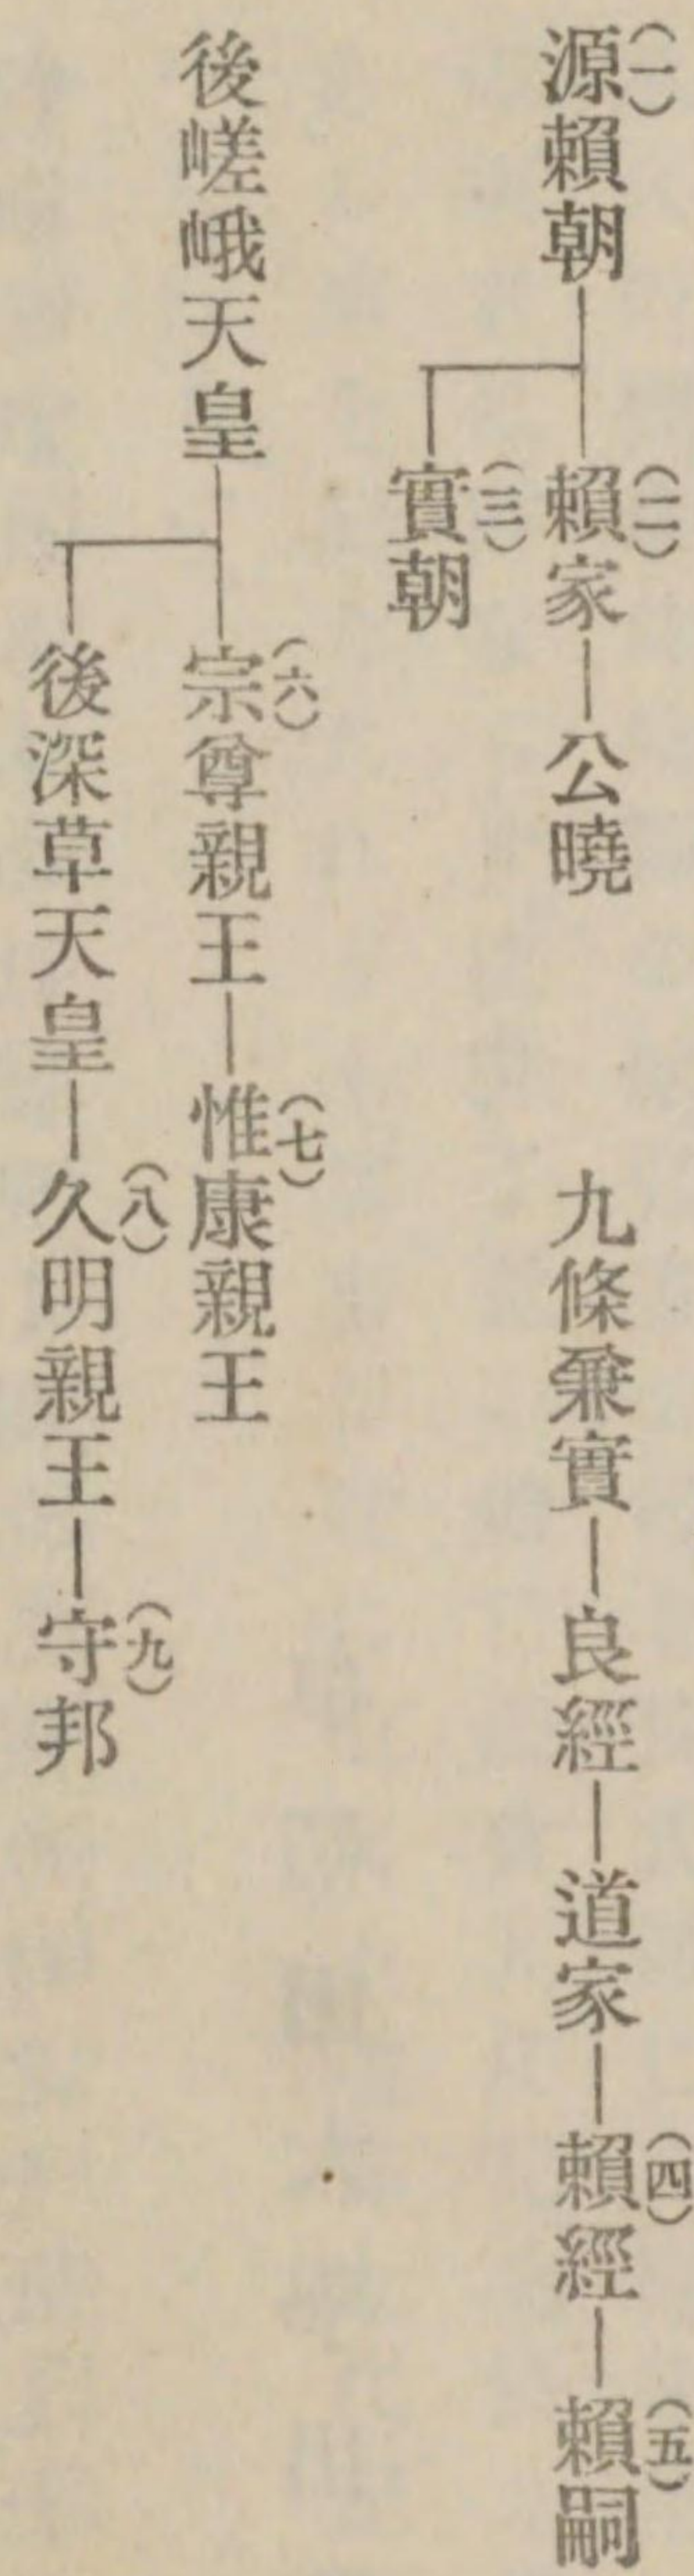 (一)源賴朝―(二)賴家―公曉
(三)實朝
九條兼實―良經―道家―(四)賴經―(五)賴嗣
後嵯峨天皇―(六)宗尊親王―(七)惟康親王
後深草天皇―(八)久明親王―(九)守邦